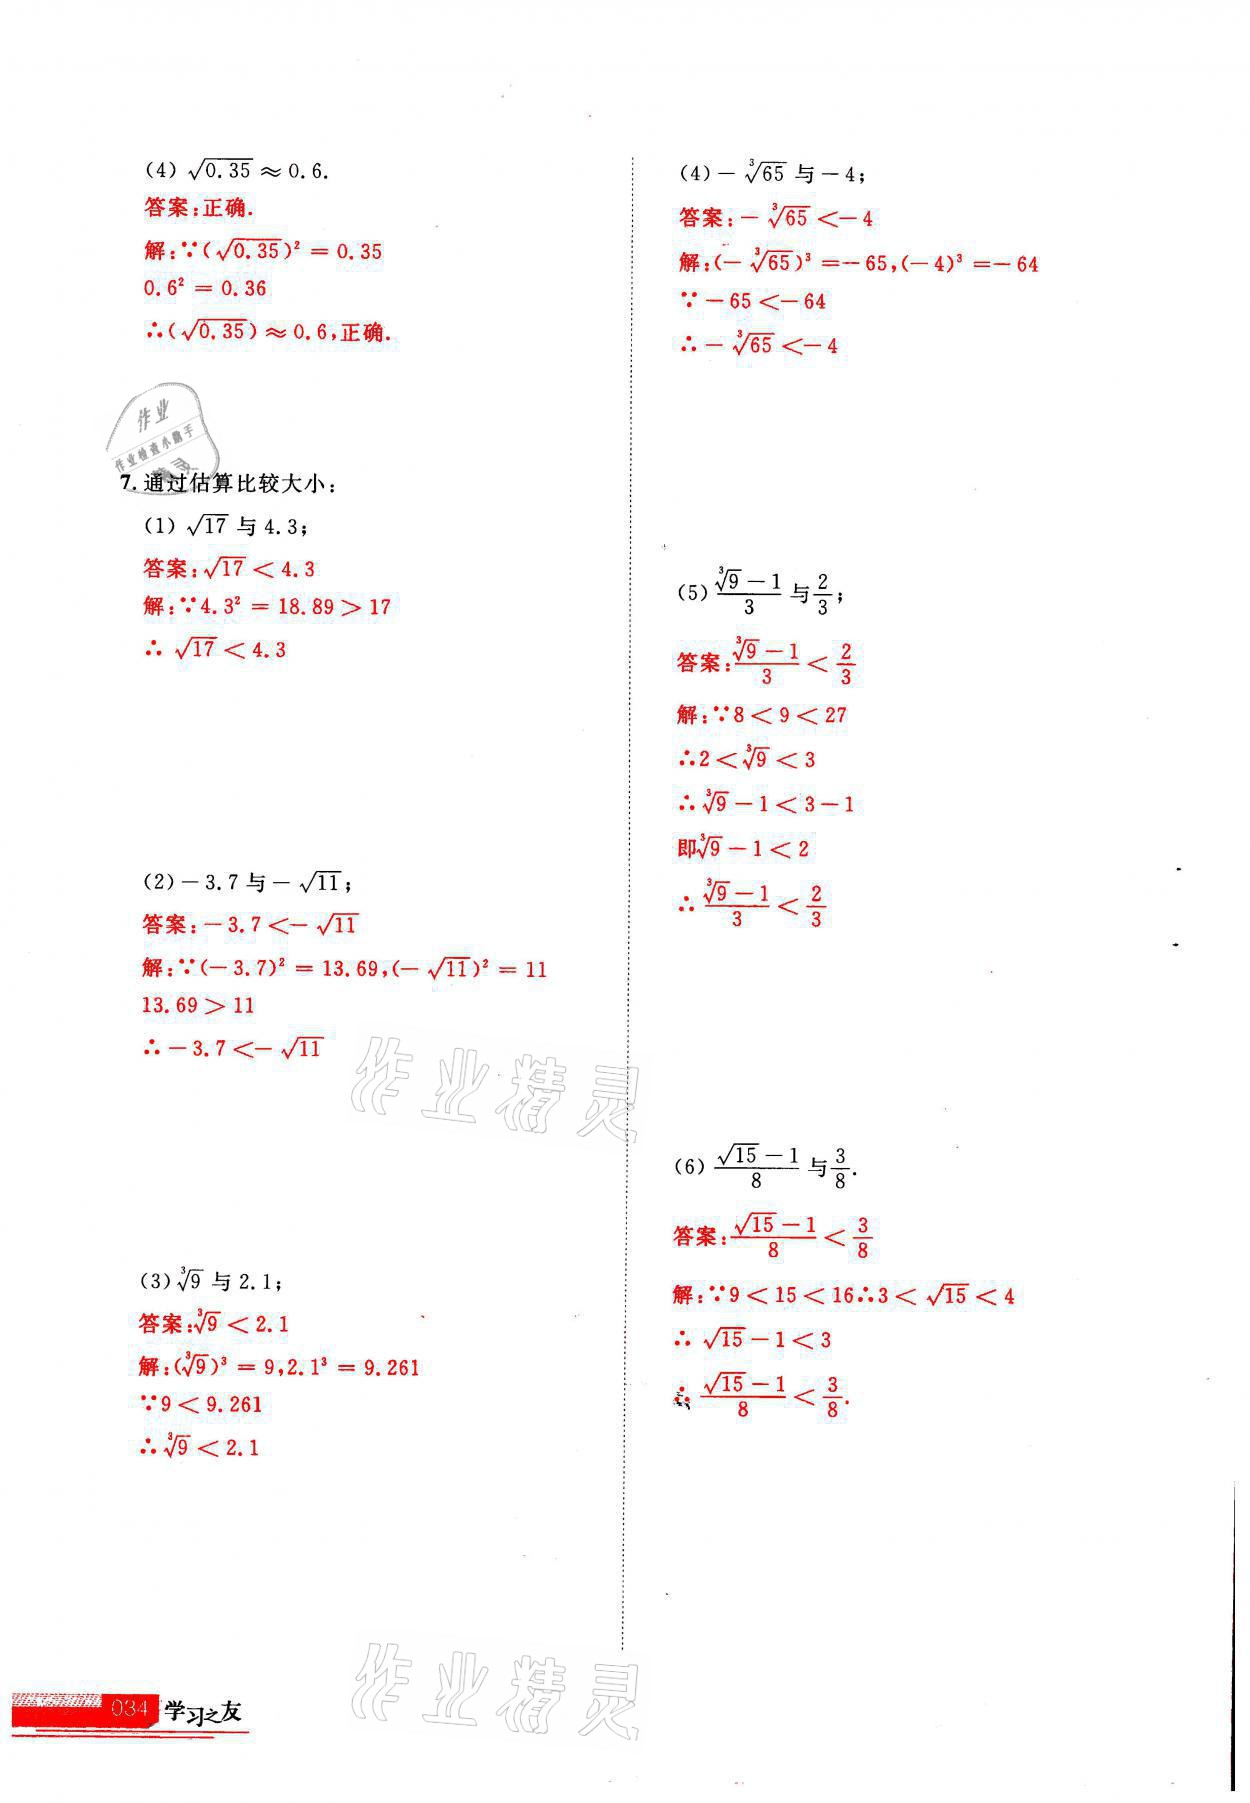 (4) √0.35 ≈ 0.6.
答案:正确.
解:∵(√0.35)² = 0.35
0.6² = 0.36
∴(√0.35) ≈ 0.6,正确.
作业
作业检查小助手
精灵
7. 通过估算比较大小:
(1) √17 与 4.3;
答案:√17 < 4.3
解:∵4.3² = 18.89 > 17
∴ √17 < 4.3
(2) −3.7 与 −√11;
答案:−3.7 < −√11
解:∵(−3.7)² = 13.69,(−√11)² = 11
13.69 > 11
∴ −3.7 < −√11
作业精灵
(3) ³√9 与 2.1;
答案:³√9 < 2.1
解:(³√9)³ = 9,2.1³ = 9.261
∵9 < 9.261
∴ ³√9 < 2.1
(4) −³√65 与 −4;
答案:−³√65 < −4
解:(−³√65)³ = −65,(−4)³ = −64
∵ −65 < −64
∴ −³√65 < −4
(5) (³√9 − 1)/3 与 2/3;
答案:(³√9 − 1)/3 < 2/3
解:∵8 < 9 < 27
∴2 < ³√9 < 3
∴ ³√9 − 1 < 3 − 1
即³√9 − 1 < 2
∴ (³√9 − 1)/3 < 2/3
(6) (√15 − 1)/8 与 3/8.
答案:(√15 − 1)/8 < 3/8
解:∵9 < 15 < 16∴3 < √15 < 4
∴ √15 − 1 < 3
∴ (√15 − 1)/8 < 3/8.
作业精灵
034 学习之友